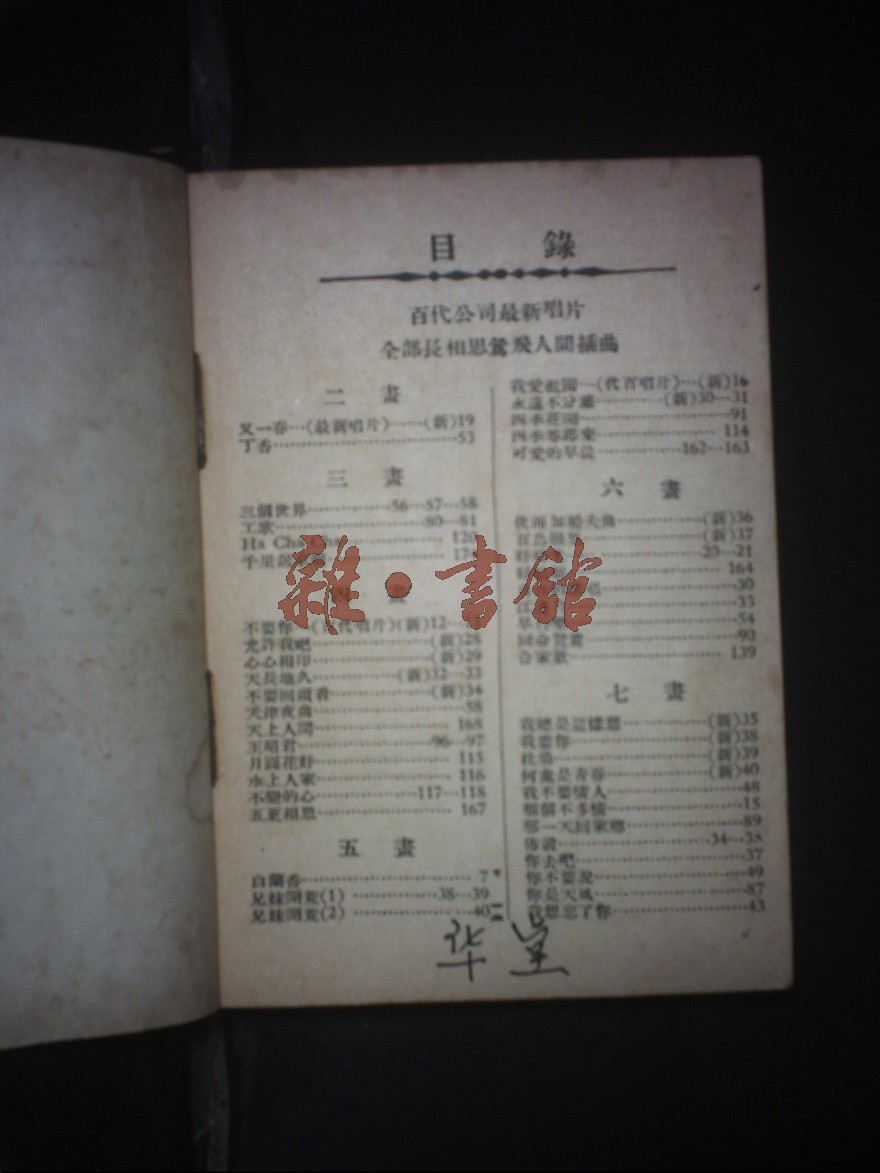 目 錄
百代公司最新唱片
全部長相思鶯飛人間插曲
二 畫
又一春…(最新唱片)……(新)19
丁香……53
三 畫
三個世界……56…57…58
工歌……80…81
Ha Cha Cha……120
千里……174
畫
不要你…(百代唱片)(新)12
允許我吧……(新)28
心心相印……(新)29
天長地久……(新)32…33
不要回頭看……(新)34
天津夜曲……58
天上人間……168
王昭君……96…97
月圓花好……115
水上人家……116
不變的心……117…118
五更相思……167
五 畫
白蘭香……7
兄妹開荒(1)……38…39
兄妹開荒(2)……40
我愛祖國…(代百唱片)…(新)16
永遠不分離……(新)30…31
四季花開……91
四季……114
可愛的早晨……162…163
六 畫
……(新)36
……(新)37
……20…21
……164
……30
……33
……54
同命鴛鴦……90
合家歡……139
七 畫
我總是這樣想……(新)35
我要你……(新)38
杜鵑……(新)39
何處是青春……(新)40
我不要情人……48
那個不多情……15
那一天回家鄉……89
佈穀……34…35
你去吧……37
你不要說……49
你是天風……87
我想忘了你……43
雜·書館